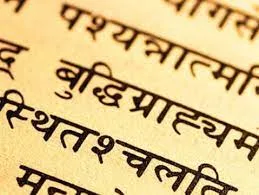 पश्यन्नात्मनि
द् बुद्धिग्राह्यम
स्थितश्चलति